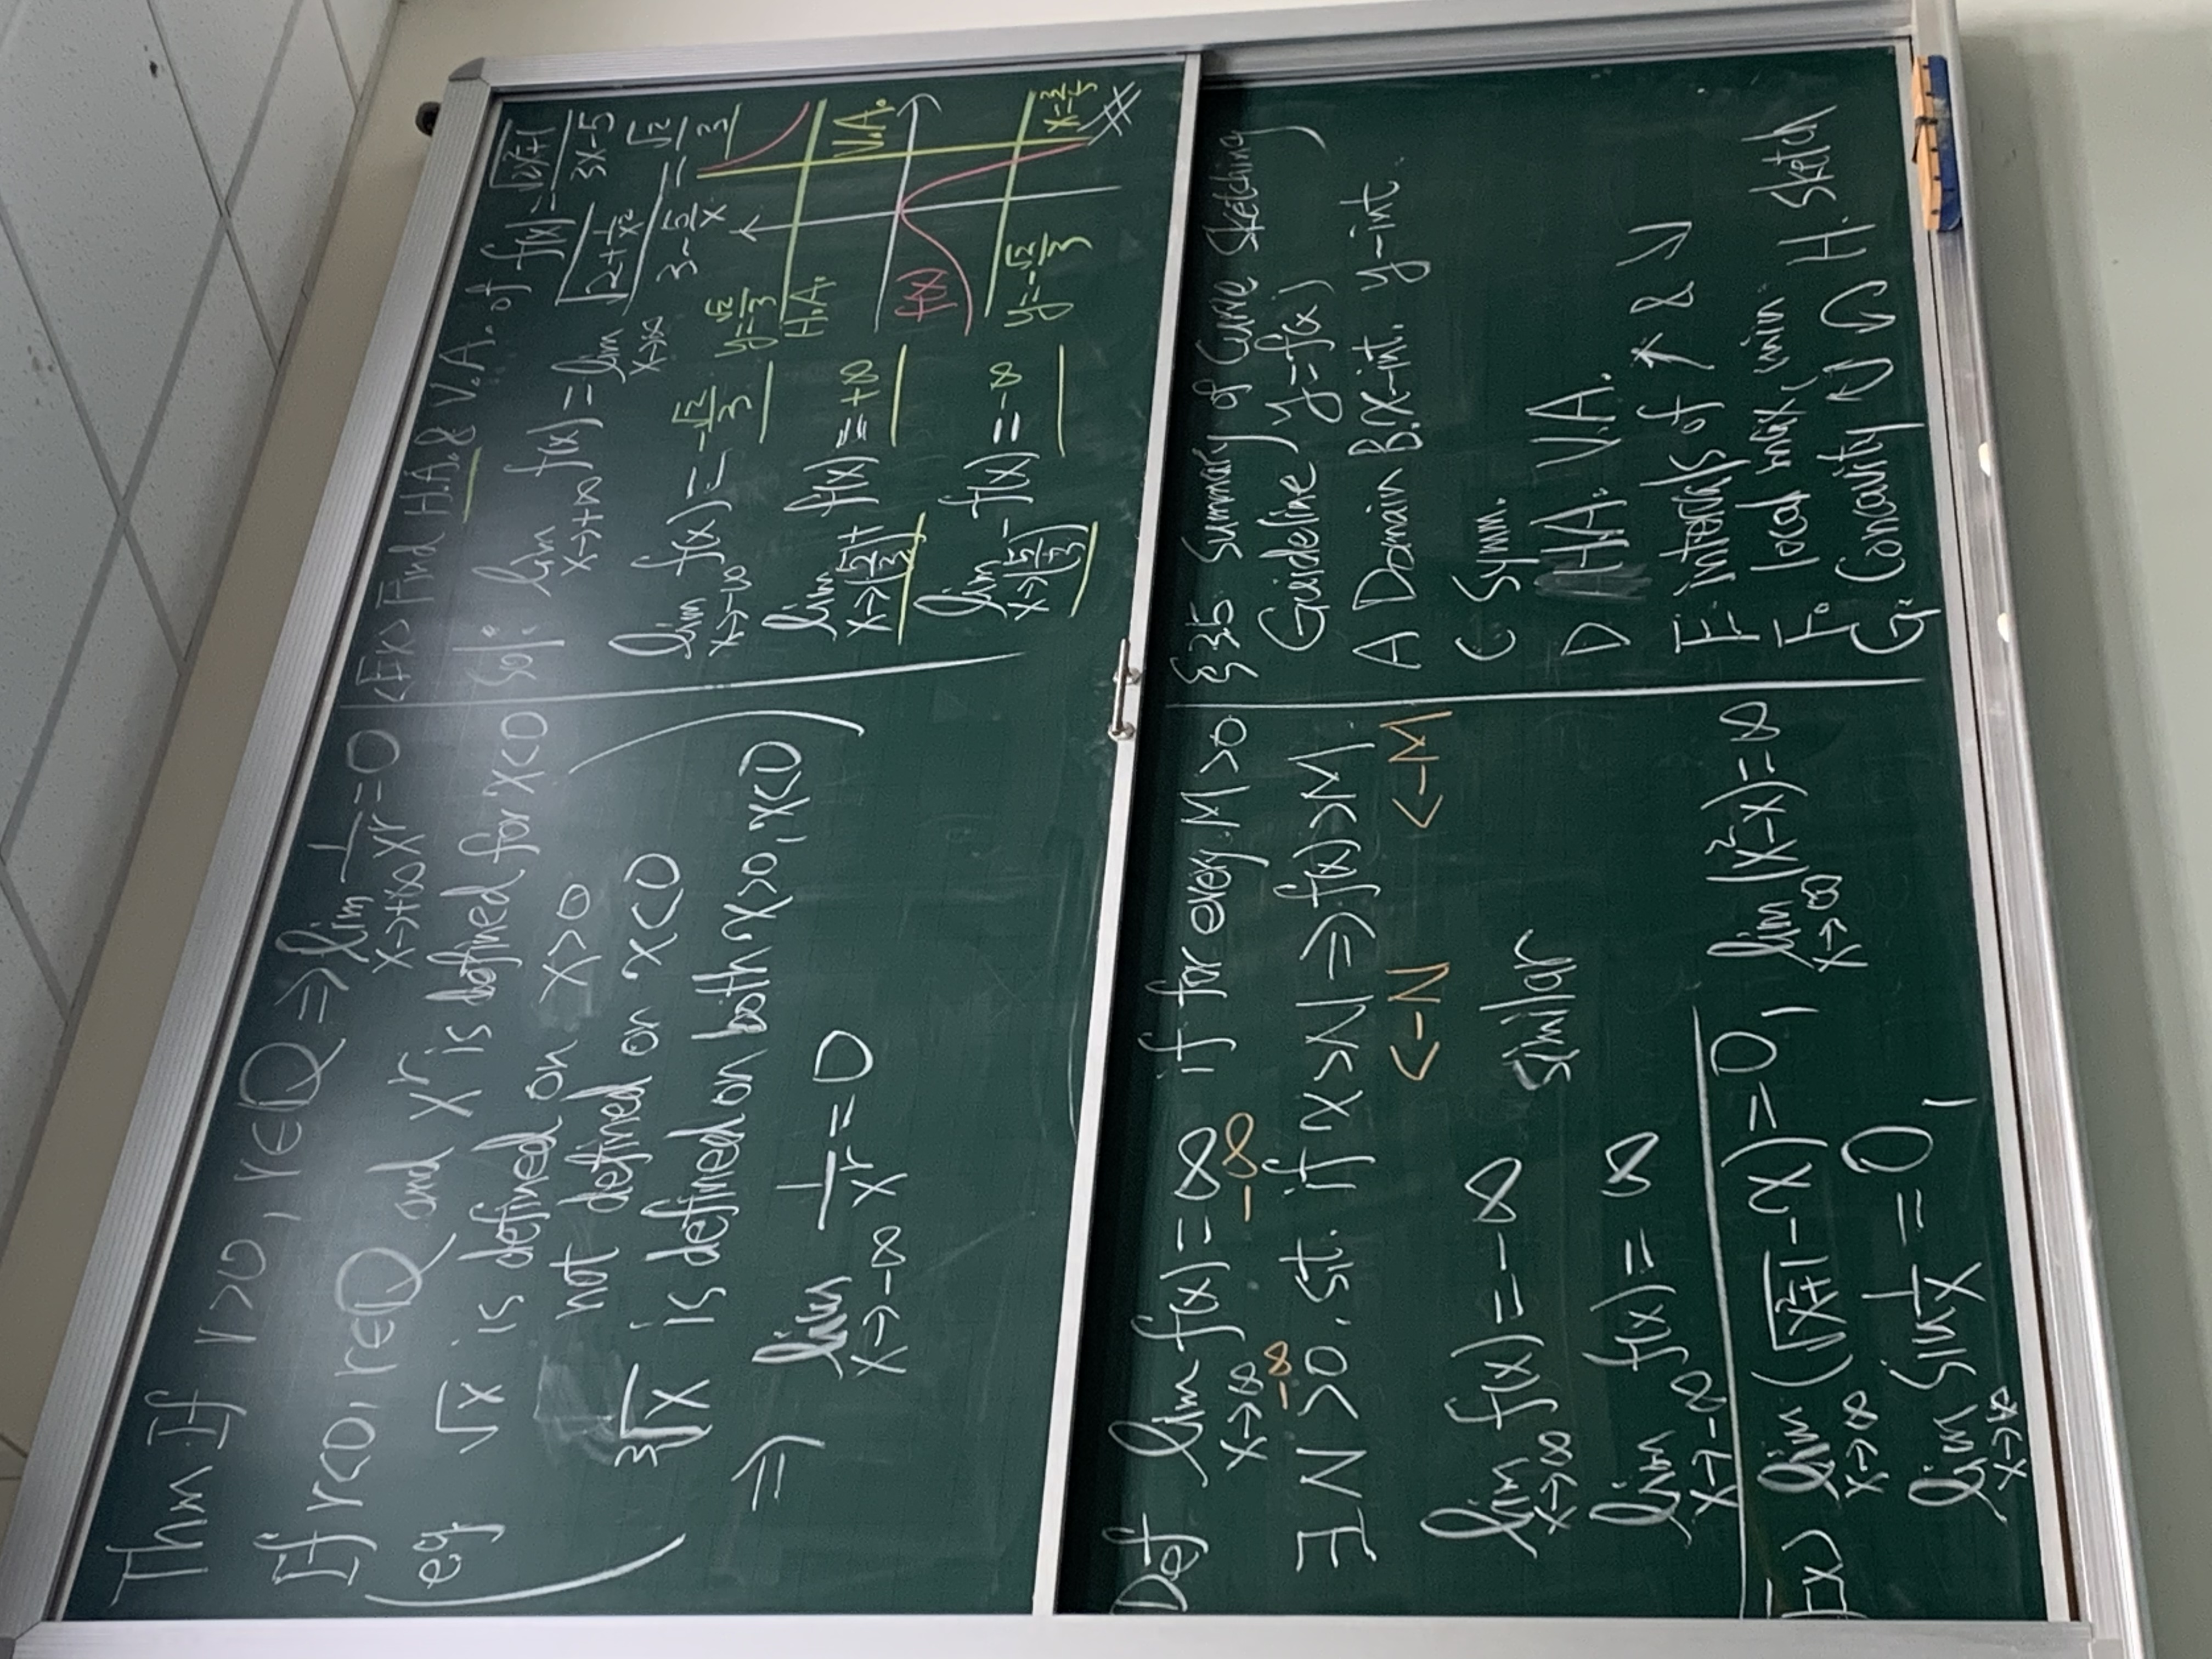 Thm If r>0, r∈Q ⇒ lim x→+∞ 1/x^r = 0
If r<0, r∈Q and x^r is defined for x<0
(eg √x is defined on x>0
not defined on x<0
∛x is defined on both x>0, x<0)
⇒ lim x→-∞ 1/x^r = 0
<Ex> Find H.A. & V.A. of f(x) = √(2x²+1) / (3x-5)
Sol: lim x→+∞ f(x) = lim x→∞ √(2+1/x²) / (3-5/x) = √2/3
lim x→-∞ f(x) = -√2/3
lim x→(5/3)+ f(x) = +∞
lim x→(5/3)- f(x) = -∞
y=√2/3
H.A.
V.A.
f(x)
y=-√2/3
x=3/5
Def lim x→∞ f(x) = ∞ if for every M>0
-∞ -∞
∃ N>0, s.t. if x>N ⇒ f(x)>M.
<-N <-M
lim x→∞ f(x) = -∞ similar
lim x→-∞ f(x) = ∞
Ex) lim x→∞ (√(x²+1) - x) = 0, lim x→∞ (x²-x) = ∞
lim x→∞ sin 1/x = 0,
§3.5 Summary of Curve Sketching
Guideline y=f(x)
A Domain B. x-int. y-int.
C Symm.
D H.A. V.A.
E intervals of ↗ & ↘
F. local max, min
G. Concavity ∪ ∩ H. sketch